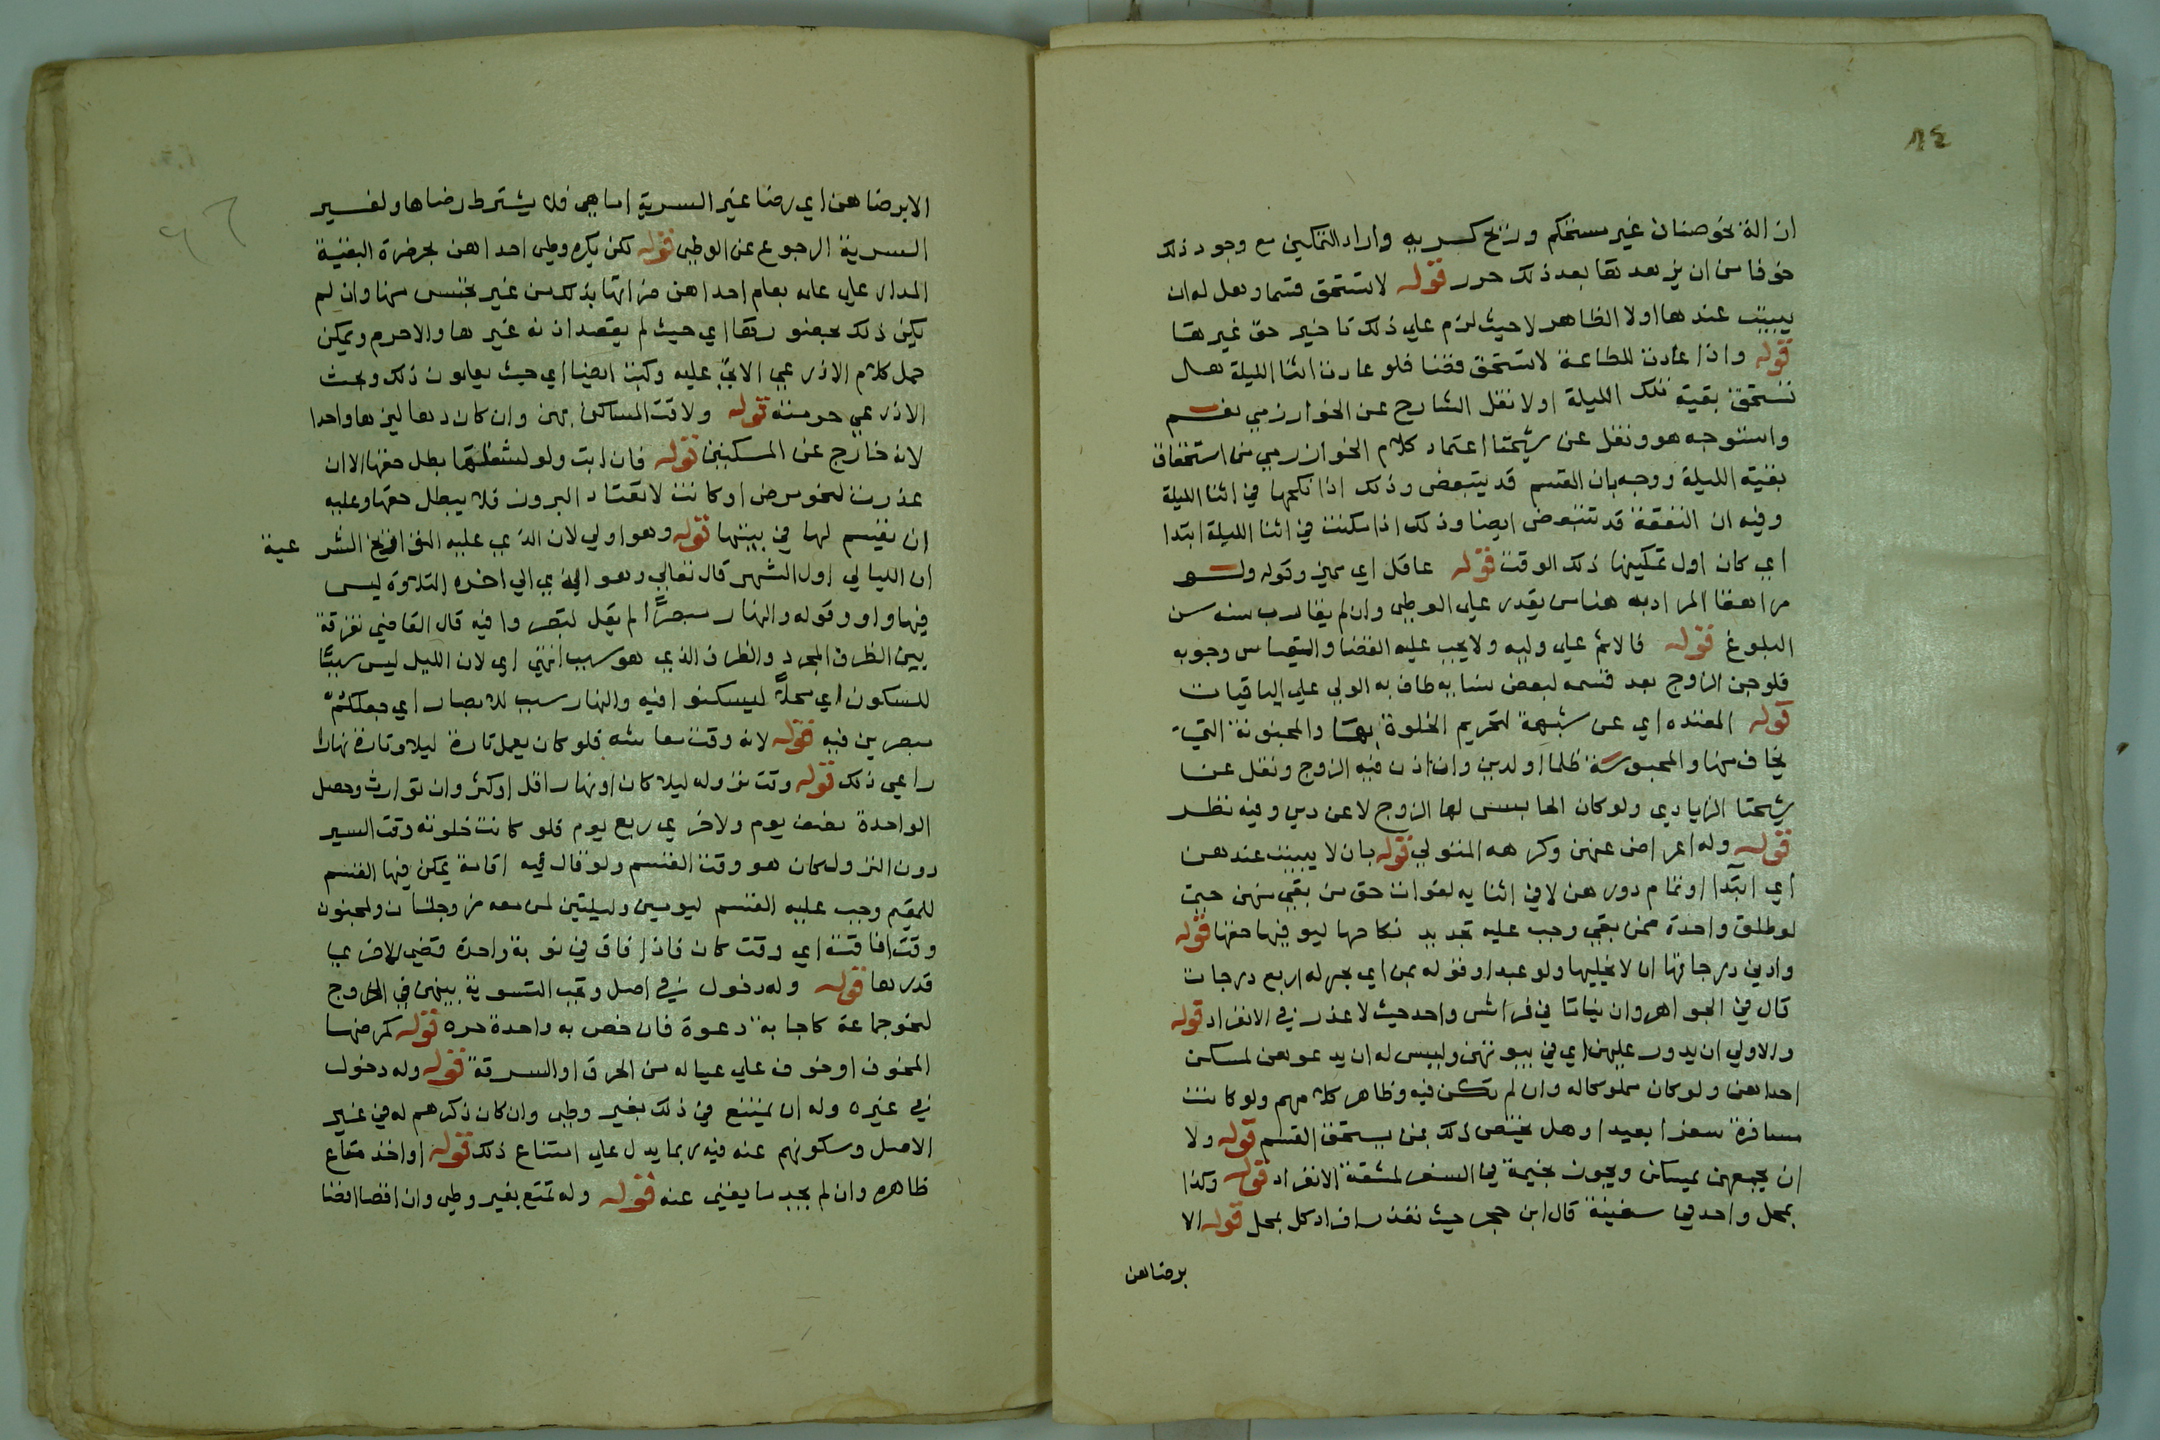 ٨٤
ازالة نحو صنان غير مستحكم وريح كريه واراد التمكين مع وجود ذلك
خوفا من ان يزهدها بعد ذلك حرر قوله لا تستحق قسما وهل له ان
يبيت عندها اولا الظاهر لا حيث لزم علي ذلك تاخير حق غيرها
قوله واذا عادت للطاعة لا تستحق قضا فلو عادت اثنا الليلة هل
تستحق بقية تلك الليلة اولا نقل الشارح عن الخوارزمي نعم
واستوجه هو ونقل عن شيخنا اعتماد كلام الخوارزمي من استحقاق
بقية الليلة ووجه بان القسم قد يتبعض وذلك اذا نكحها في اثنا الليلة
وفيه ان النفقة قد تتبعض ايضا وذلك اذا مكنت في اثنا الليلة ابتدا
اي كان اول تمكينها ذلك الوقت قوله عاقل اي مميز وقوله ولو
مراهقا المراد به هنا من يقدر علي الوطي وان لم يقارب سنه سن
البلوغ قوله فالاثم علي وليه ولا يجب عليه القضا والقياس وجوبه
فلو جن الزوج بعد قسمه لبعض نسايه طاف به الولي علي الباقيات
قوله المعتده اي عن شبهة لتحريم الخلوة بها والمجنونة التي
يخاف منها والمحبوسة ظلما او لدين وان اذن فيه الزوج ونقل عن
شيخنا الزيادي ولو كان الحابس لها الزوج لا عن دين وفيه نظر
قوله وله اعراض عنهن وكرهه المتولي قوله بان لا يبيت عندهن
اي ابتدا او تمام دورهن لا في اثنايه لفوات حق من بقي منهن حيت
لو طلق واحدة ممن بقي وجب عليه تجديد نكاحها ليوفيها حقها قوله
وادني درجاتها ان لا يخليها ولو عبدا وقوله بمن اي بحر له اربع درجات
قال في الجواهر وان يناتا في فراش واحد حيث لا عذر في الانفراد قوله
والاولي ان يدور عليهن اي في بيوتهن وليس له ان يدعوهن لمسكن
احداهن ولو كان مملوكا له وان لم تكن فيه وظاهر كلامهم ولو كانت
مسافرة سفرا بعيدا وهل يختص ذلك بمن يستحق القسم قوله ولا
ان يجمعهن بمسكن ويجوز بخيمة في السفر لمشقة الانفراد قوله وكذا
بمحل واحد في سفينة قال ابن حجر حيث تعذر افراد كل بمحل قوله الا
برضاهن
الا برضاهن اي رضا غير السرية اما هي فلا يشترط رضاها ولغير
السرية الرجوع عن الوطي قوله لكن يكره وطي احداهن بحضرة البقية
المدار علي علم احداهن مراتها بذلك من غير تجسس منها وان لم
يكن ذلك بحضورها اي حيث لم يقصد اذية غيرها والاحرم ويمكن
حمل كلام الاذرعي الاتي عليه وكتب ايضا اي حيث يعلمون ذلك وبحث
الاذرعي حرمته قوله ولاقت المساكن بهن وان كان دهاليزها واحدا
لانه خارج عن المسكنين قوله فان ابت ولو لشغلها بطل حقها الا ان
عذرت لنحو مرض او كانت لا تعتاد البروز فلا يبطل حقها وعليه
ان يقسم لها في بيتها قوله وهو اولي لان الذي عليه التواريخ الشرعية
ان الليالي اول الشهر قال تعالي وهو الذي الي اخره التلاوة ليس
فيها واو وقوله والنهار مبصرا لم يقل لتبصروا فيه قال القاضي تفرقة
بين الظرف المجرد والظرف الذي هو سبب انتهي اي لان الليل ليس سببا
للسكون اي محلا ليسكنوا فيه والنهار سبب للابصار اي جعلكم
مبصرين فيه قوله لانه وقت معاشه فلو كان يعمل تارة ليلا وتارة نهارا
راعي ذلك قوله وقت نزوله ليلا كان او نهارا قل او كثر وان توارث وحصل
لواحدة نصف يوم ولاخري ربع يوم فلو كانت خلوته وقت السير
دون النزول كان هو وقت القسم ولو قال فيه اقامة يمكن فيها القسم
للمقيم وجب عليه القسم ليومين وليلتين لمن معه من زوجتان والمجنون
وقت افاقته اي وقت كان فاذا افاق في نوبة واحدة قضي للاخري
قدرها قوله وله دخول في اصل وتجب التسوية بينهن في الخروج
لنحو جماعة كاجابة دعوة فان خص به واحدة حرم قوله كمرضها
المخوف او خوف علي عياله من الحرق او السرقة قوله وله دخول
في غيره وله ان يمتنع في ذلك بغير وطي وان كان ذكرهم له في غير
الاصل وسكوتهم عنه فيه ربما يدل علي امتناع ذلك قوله او اخذ متاع
ظاهره وان لم يجد ما يغني عنه قوله وله تمتع بغير وطي وان افضا افضا